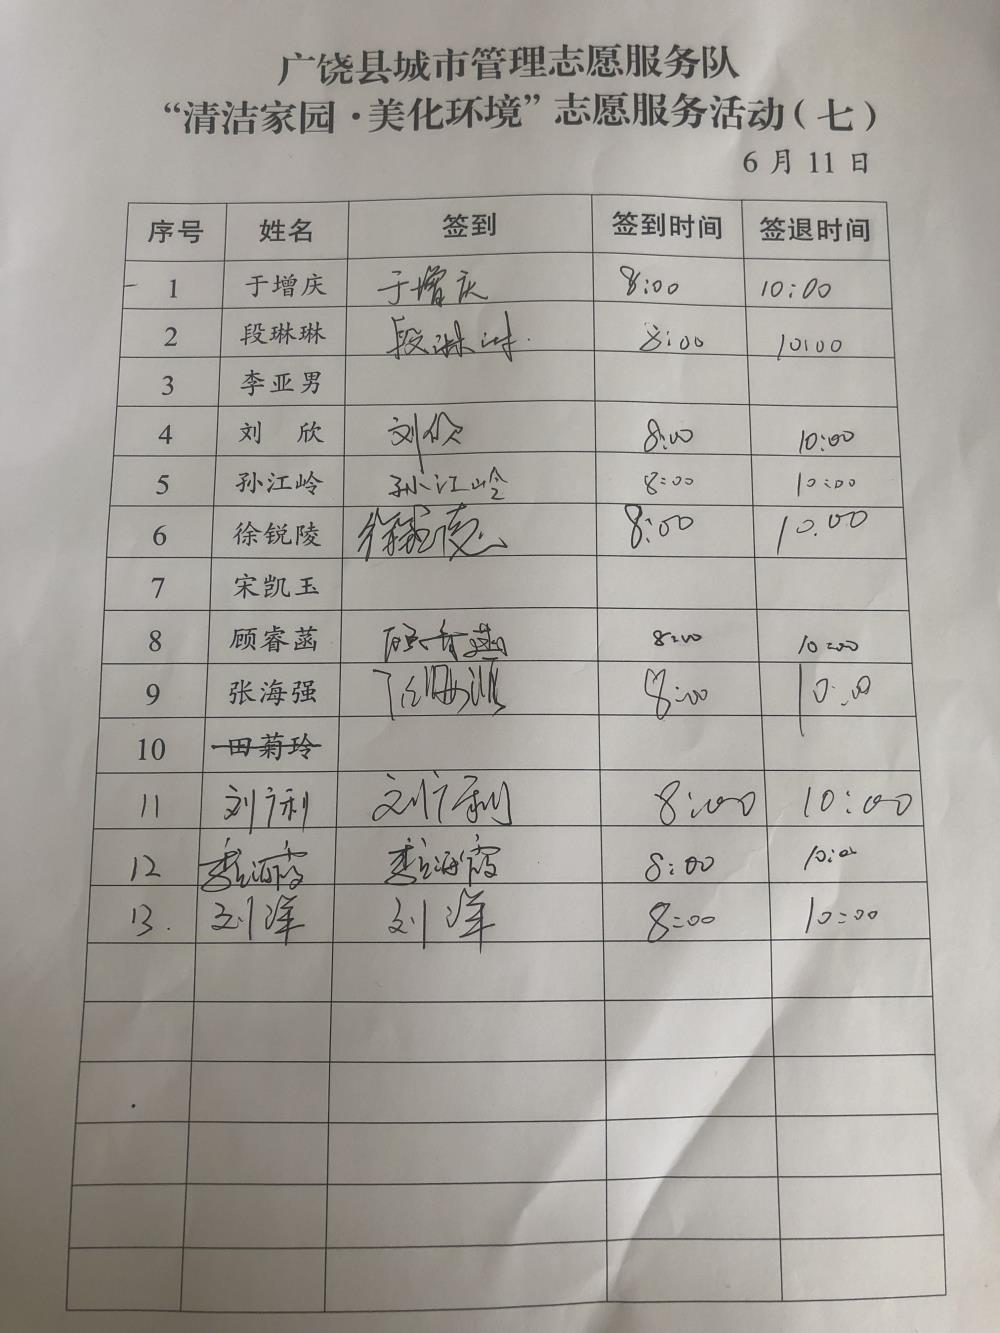 广饶县城市管理志愿服务队
“清洁家园·美化环境”志愿服务活动（七）
6 月 11 日
序号 姓名 签到 签到时间 签退时间
1 于增庆 于增庆 8:00 10:00
2 段琳琳 段琳琳 8:00 10:00
3 李亚男
4 刘 欣 刘欣 8:00 10:00
5 孙江岭 孙江岭 8:00 10:00
6 徐锐陵 8:00 10:00
7 宋凯玉
8 顾睿菡 顾睿菡 8:00 10:00
9 张海强 8:00 10:00
10 田菊玲
11 刘广利 刘广利 8:00 10:00
12 海霞 海霞 8:00 10:00
13. 刘洋 刘洋 8:00 10:00